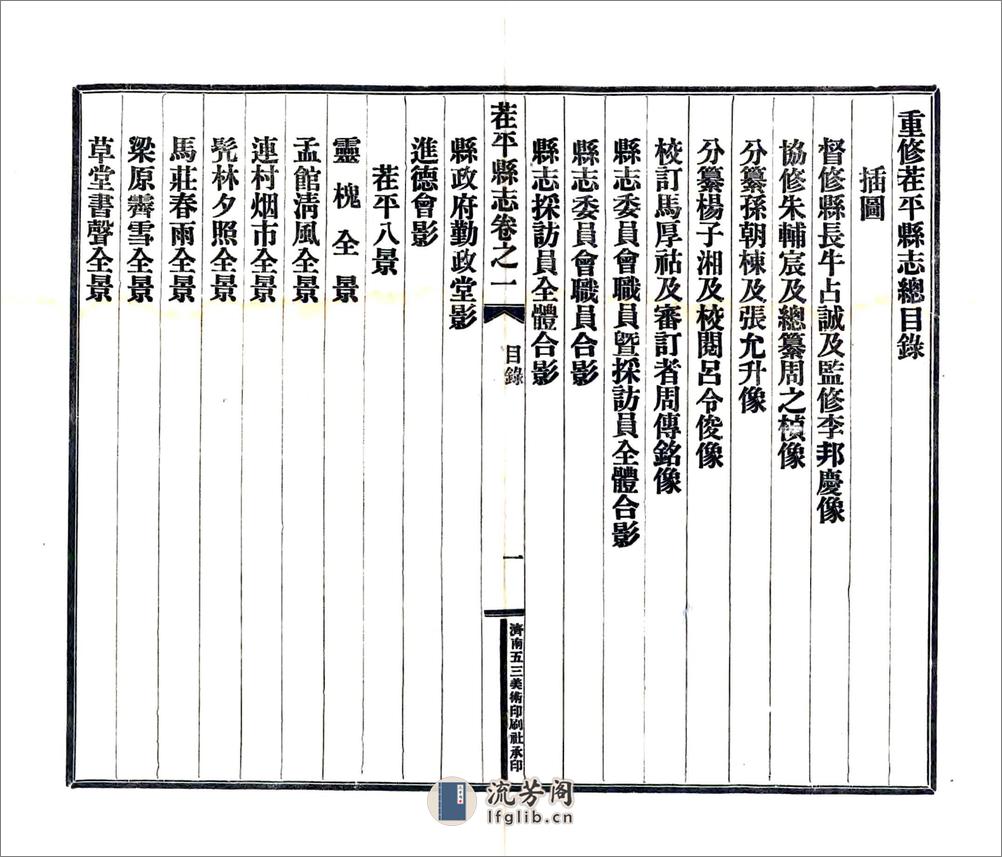 重修茌平縣志總目錄
插圖
督修縣長牛占誠及監修李邦慶像
協修朱輔宸及總纂周之楨像
分纂孫朝棟及張允升像
分纂楊子湘及校閱呂令俊像
校訂馬厚祜及審訂者周傳銘像
縣志委員會職員暨採訪員全體合影
縣志委員會職員合影
縣志採訪員全體合影
茌平縣志卷之一 目錄 一 濟南五三美術印刷社承印
縣政府勤政堂影
進德會影
茌平八景
靈槐全景
孟館清風全景
連村烟市全景
髠林夕照全景
馬莊春雨全景
梁原霽雪全景
草堂書聲全景
流芳阁
lfglib.cn